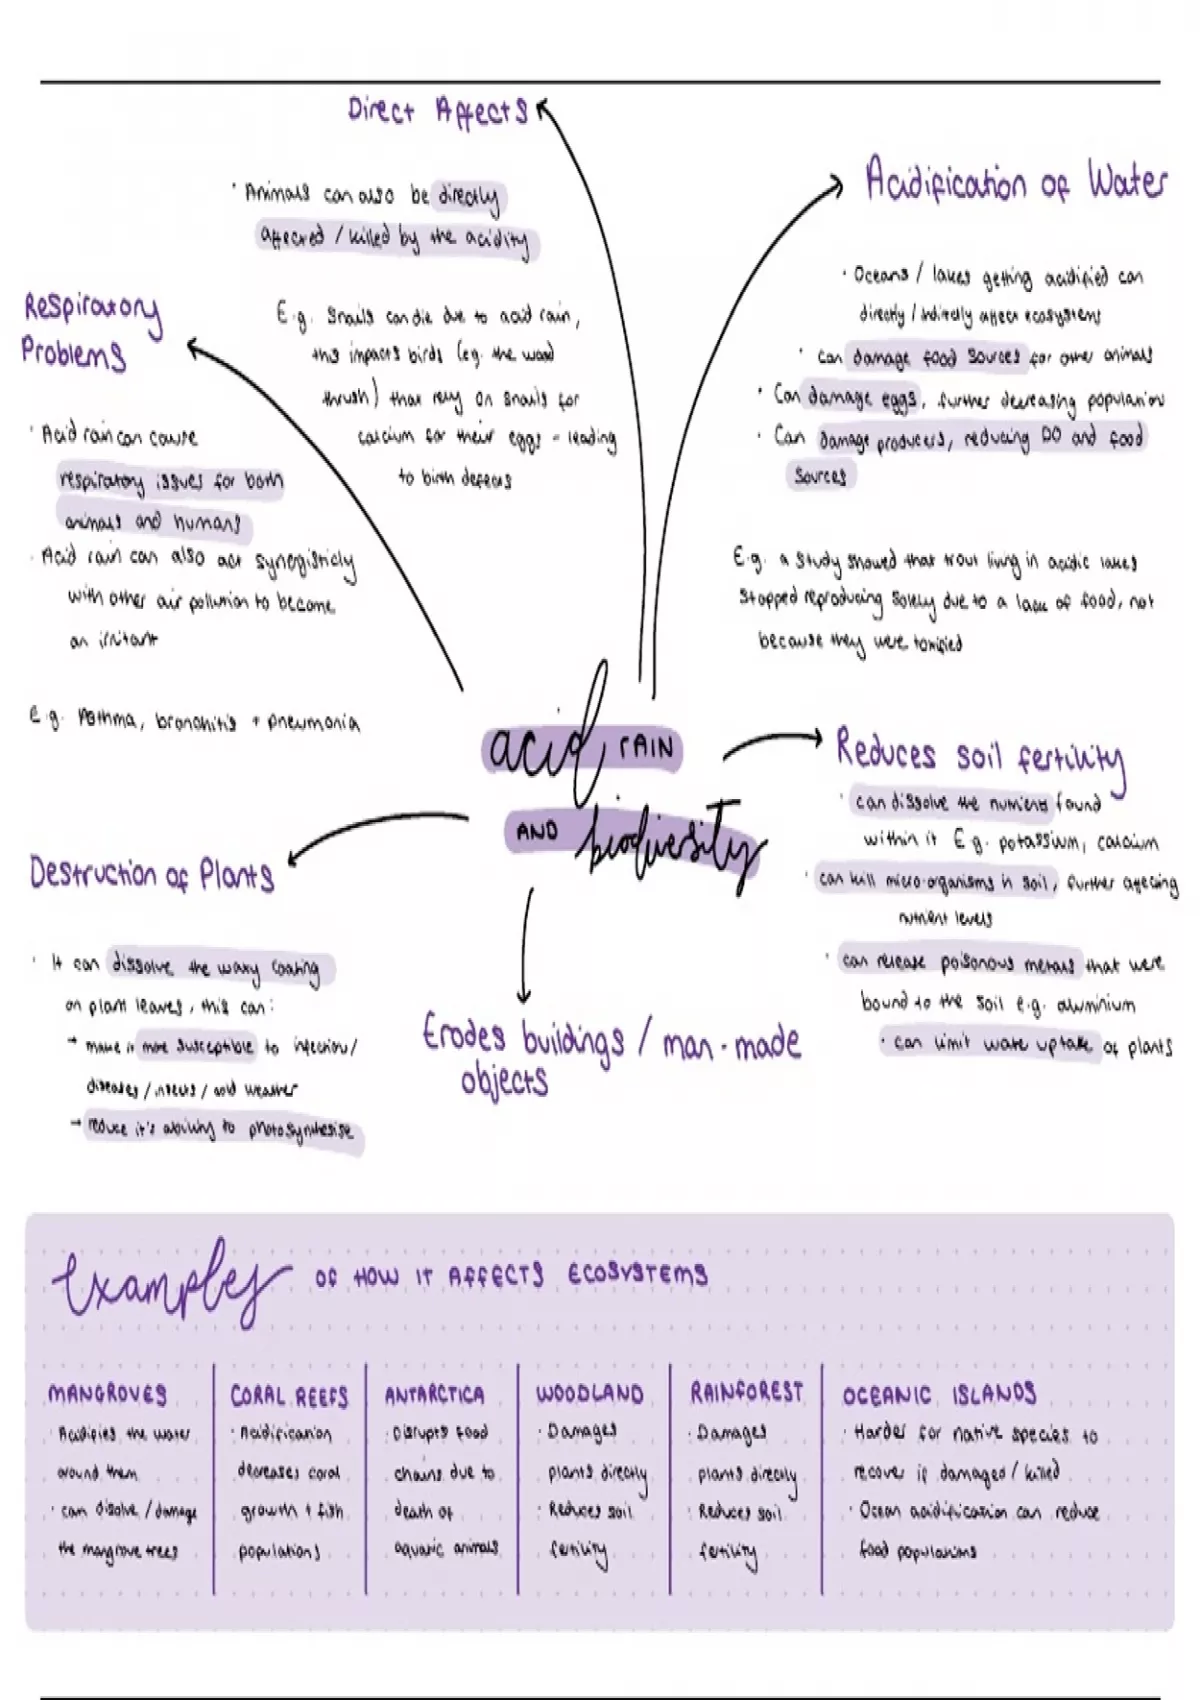 Direct Affects
· Animals can also be directly
affected / killed by the acidity
E.g. Snails can die due to acid rain,
this impacts birds (eg. the wood
thrush) that rely on snails for
calcium for their eggs - leading
to birth defects
Acidification of Water
· Oceans / lakes getting acidified can
directly / indirectly affect ecosystems
· can damage food sources for other animals
· Can damage eggs, further decreasing population
· Can damage producers, reducing DO and food
sources
E.g. a study showed that trout living in acidic lakes
stopped reproducing solely due to a lack of food, not
because they were toxified
Respiratory
Problems
· Acid rain can cause
respiratory issues for both
animals and humans
· Acid rain can also act synergisticly
with other air pollution to become
an irritant
E.g. Asthma, bronchitis + pneumonia
acid RAIN
AND biodiversity
Reduces soil fertility
· can dissolve the nutrients found
within it E.g. potassium, calcium
· can kill micro-organisms in soil, further affecting
nutrient levels
· can release poisonous metals that were
bound to the soil e.g. aluminium
· can limit water uptake of plants
Destruction of Plants
· It can dissolve the waxy coating
on plant leaves, this can:
→ make it more susceptible to infection /
diseases / insects / cold weather
→ reduce it's ability to photosynthesise
Erodes buildings / man-made
objects
Examples OF HOW IT AFFECTS ECOSYSTEMS
MANGROVES
· Acidifies the water
around them
· can disolve / damage
the mangrove trees
CORAL REEFS
· Acidification
decreases coral
growth + fish
populations
ANTARCTICA
· Disrupts food
chains due to
death of
aquatic animals
WOODLAND
· Damages
plants directly
· Reduces soil
fertility
RAINFOREST
· Damages
plants directly
· Reduces soil
fertility
OCEANIC ISLANDS
· Harder for native species to
recover if damaged / killed
· Ocean acidification can reduce
food populations